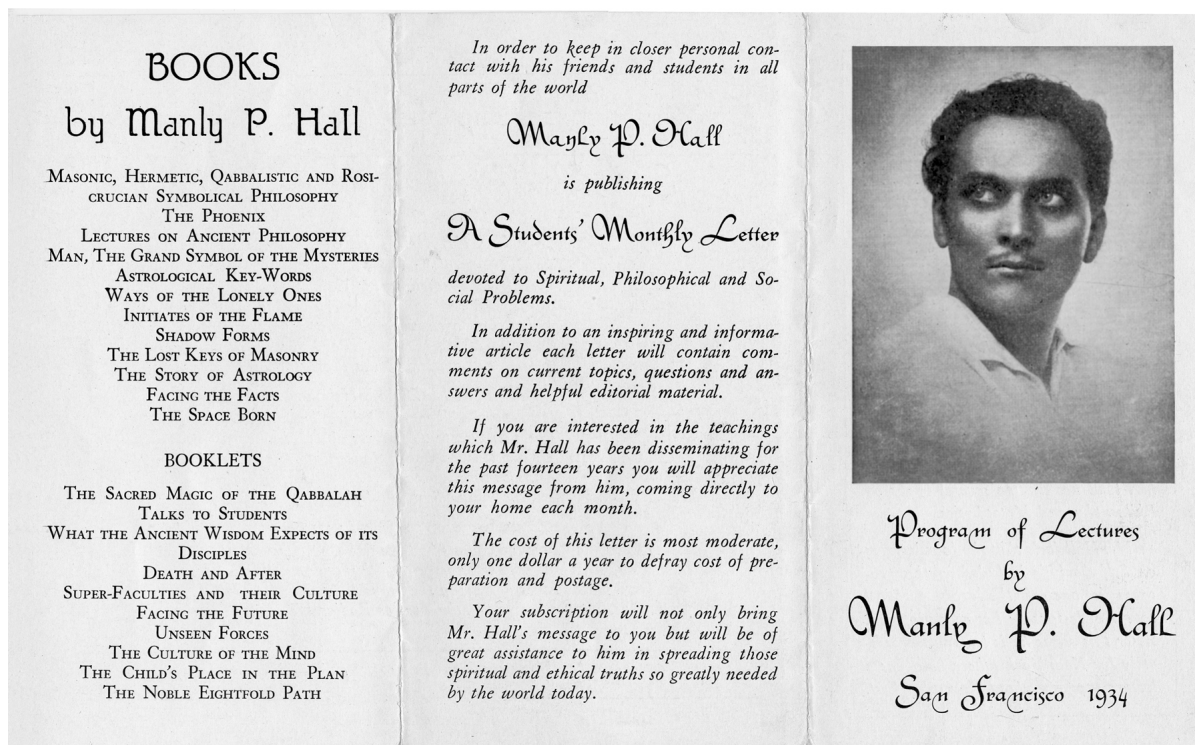 BOOKS
by Manly P. Hall
Masonic, Hermetic, Qabbalistic and Rosi-
crucian Symbolical Philosophy
The Phoenix
Lectures on Ancient Philosophy
Man, The Grand Symbol of the Mysteries
Astrological Key-Words
Ways of the Lonely Ones
Initiates of the Flame
Shadow Forms
The Lost Keys of Masonry
The Story of Astrology
Facing the Facts
The Space Born
BOOKLETS
The Sacred Magic of the Qabbalah
Talks to Students
What the Ancient Wisdom Expects of its
Disciples
Death and After
Super-Faculties and their Culture
Facing the Future
Unseen Forces
The Culture of the Mind
The Child's Place in the Plan
The Noble Eightfold Path
In order to keep in closer personal con-
tact with his friends and students in all
parts of the world
Manly P. Hall
is publishing
A Students' Monthly Letter
devoted to Spiritual, Philosophical and So-
cial Problems.
In addition to an inspiring and informa-
tive article each letter will contain com-
ments on current topics, questions and an-
swers and helpful editorial material.
If you are interested in the teachings
which Mr. Hall has been disseminating for
the past fourteen years you will appreciate
this message from him, coming directly to
your home each month.
The cost of this letter is most moderate,
only one dollar a year to defray cost of pre-
paration and postage.
Your subscription will not only bring
Mr. Hall's message to you but will be of
great assistance to him in spreading those
spiritual and ethical truths so greatly needed
by the world today.
Program of Lectures
by
Manly P. Hall
San Francisco 1934